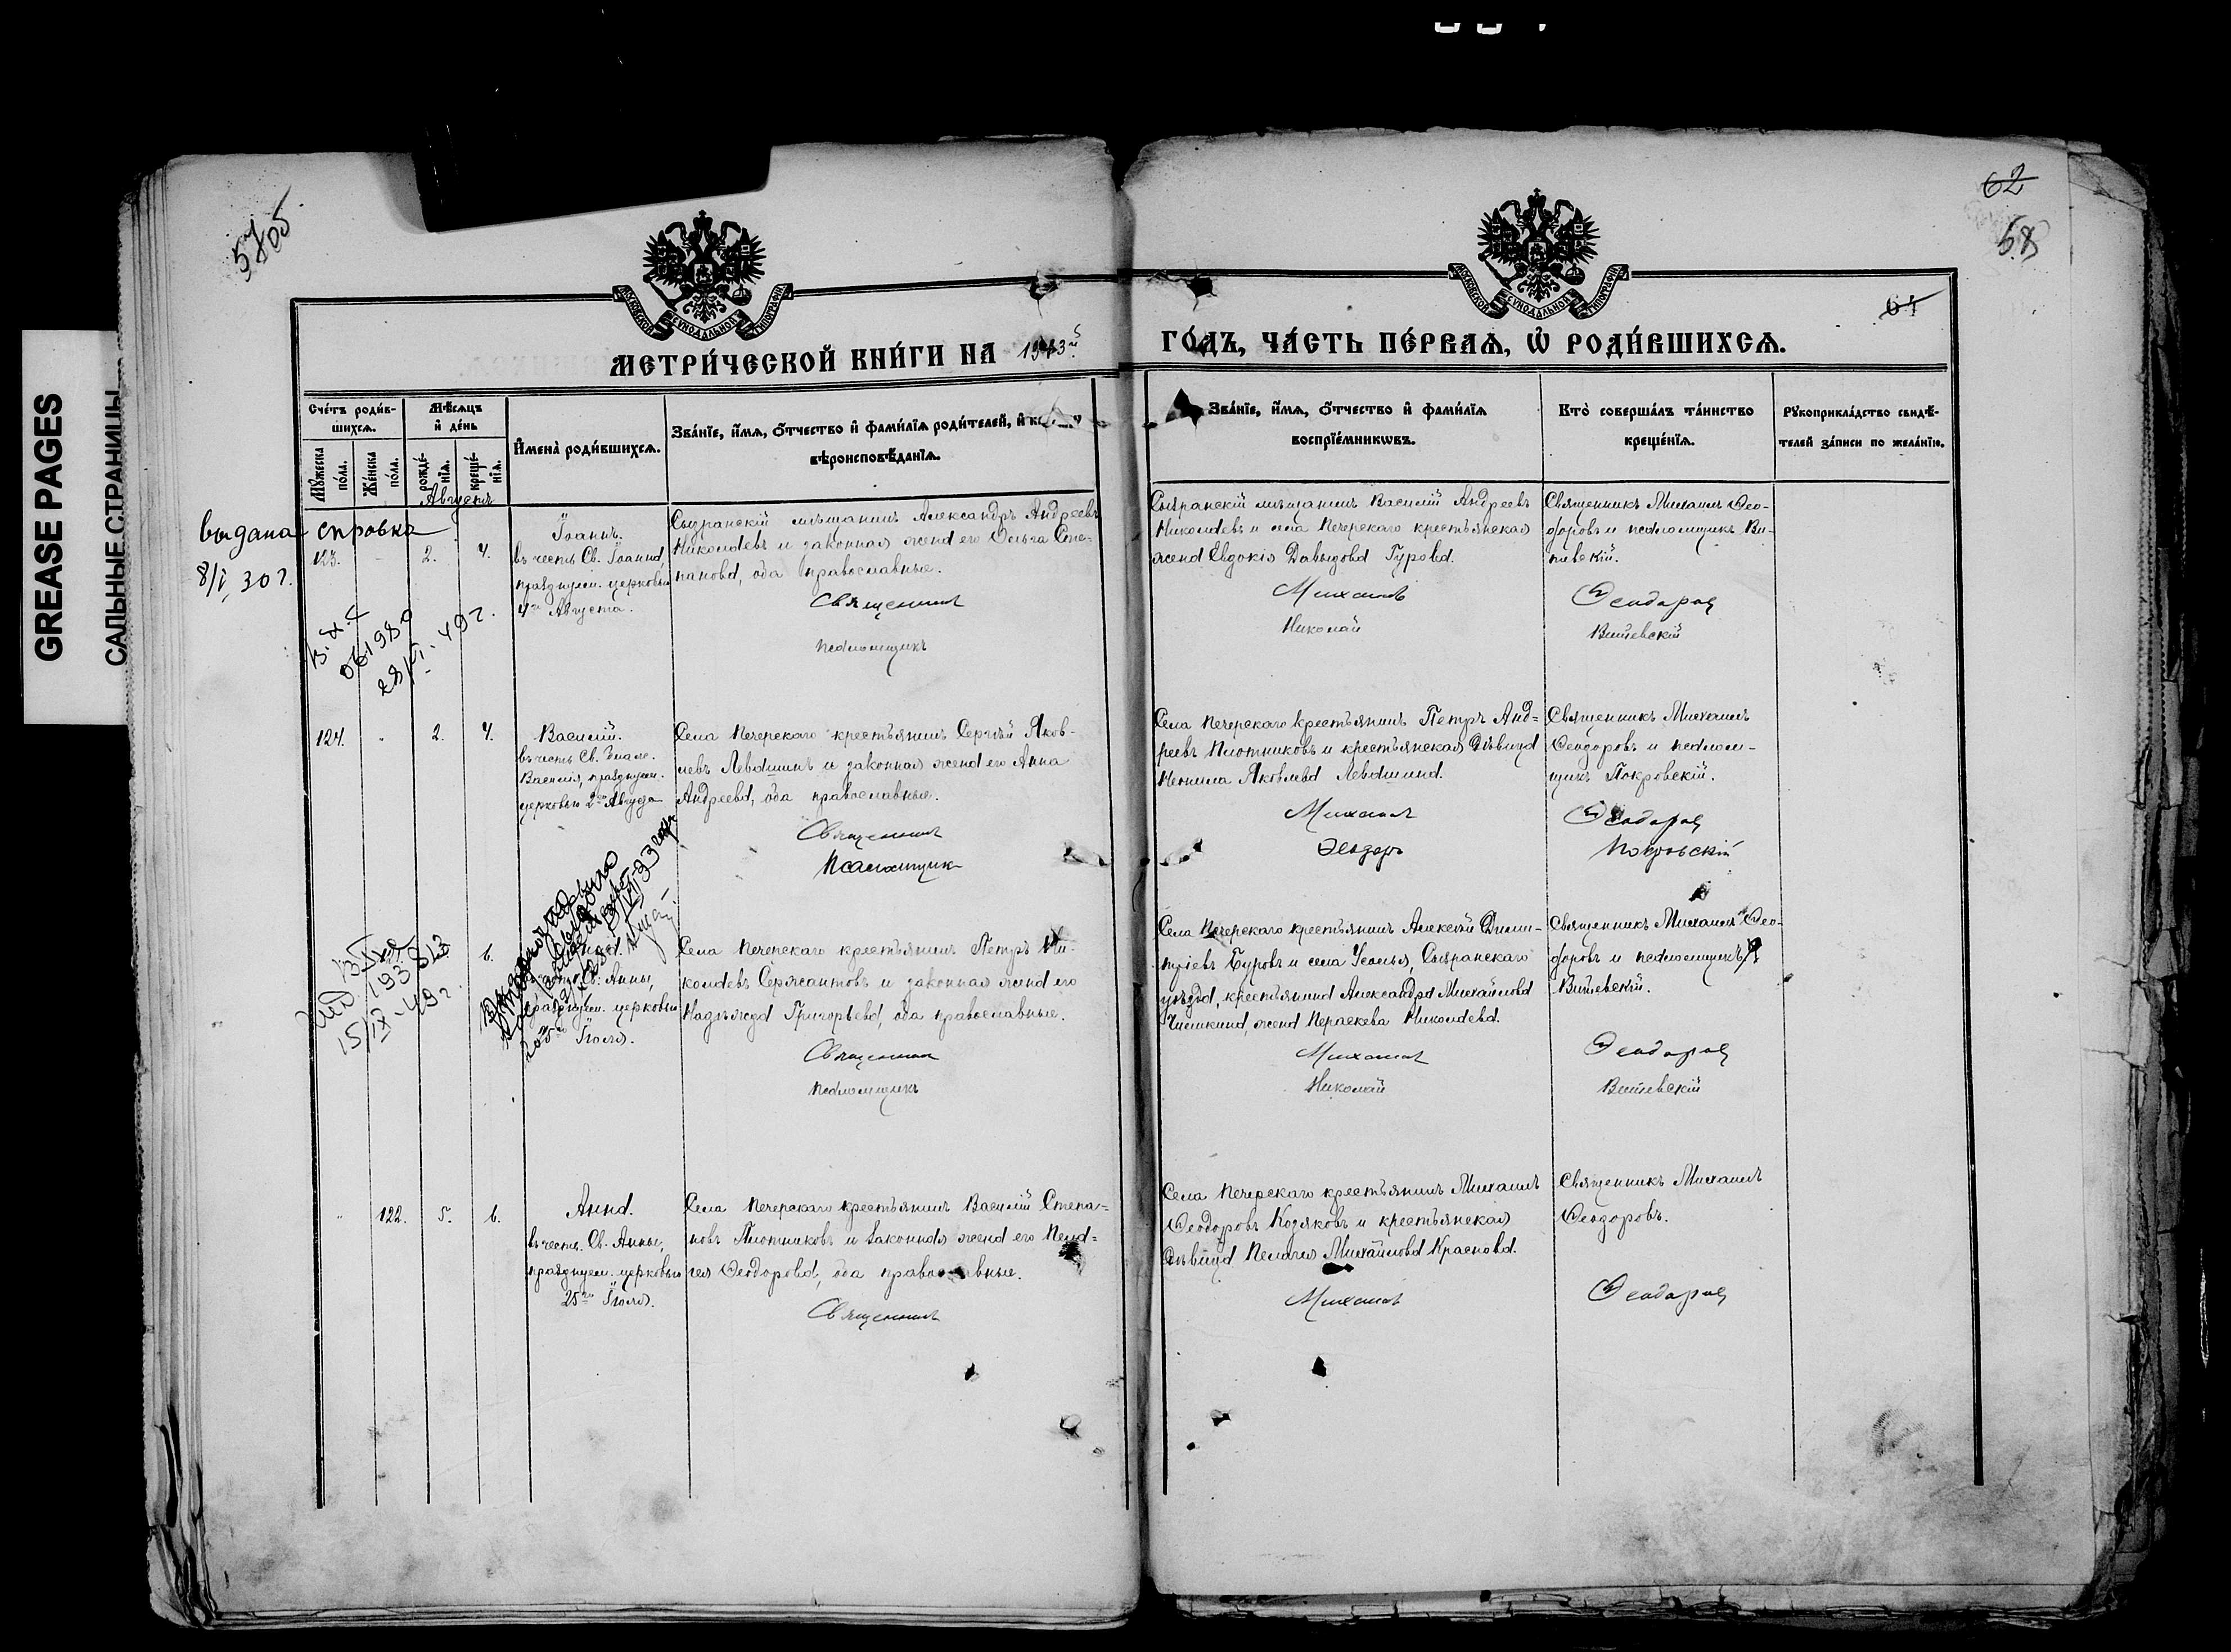 62
58
57об
64
GREASE PAGES
САЛЬНЫЕ СТРАНИЦЫ
МОСКОВСКОЙ СѴНОДАЛЬНОЙ ТИПОГРАФІИ
МОСКОВСКОЙ СѴНОДАЛЬНОЙ ТИПОГРАФІИ
МЕТРИ́ЧЕСКОЙ КНИ́ГИ НА 1913й
ГО́ДЪ, ЧА́СТЬ ПЕ́РВАѦ, Ѡ҆ РОДИ́ВШИХСѦ.
Сче́тъ роди́в-
шихсѧ.
Мѣ́сѧцъ
и҆ де́нь
Мꙋ́жеска
по́ла.
Же́нска
по́ла.
рожде́-
нїѧ.
креще́-
нїѧ.
И҆мена̀ роди́вшихсѧ.
Зва́нїе, и҆́мѧ, ѻ҆́тчество и҆ фами́лїѧ роди́телей, и҆
вѣроисповѣ́данїѧ.
Зва́нїе, и҆́мѧ, ѻ҆́тчество и҆ фами́лїѧ
воспрїе́мникѡвъ.
Кто̀ соверша́лъ та́инство
креще́нїѧ.
Рꙋкоприкла́дство свидѣ́-
телей за́писи по жела́нїю.
Августъ
выдана справка
8/I, 30 г.
123.
2.
4.
Іоаннъ.
въ честь Св. Іоанна,
празднуем. церковью
4го Августа.
Сызранскій мѣщанинъ Александръ Андреевъ
Николаевъ и законная жена его Ольга Сте-
панова, оба православные.
Священникъ
псаломщикъ
Сызранскій мѣщанинъ Василій Андреевъ
Николаевъ и села Печерскаго крестьянская
жена Евдокія Давыдова Гурова.
Михаилъ
Николай
Священникъ Михаилъ Ѳео-
доровъ и псаломщикъ Ви-
тевскій.
Ѳеодоровъ
Витевскій
28/VI 49 г.
124.
2.
4.
Василій.
въ честь Св. блаж.
Василія, празднуем.
церковью 2го Августа
Села Печерскаго крестьянинъ Сергѣй Яков-
левъ Левашинъ и законная жена его Анна
Андреева, оба православные.
Священникъ
Псаломщикъ
Села Печерскаго крестьянинъ Петръ Анд-
реевъ Плотниковъ и крестьянская дѣвица
Ненила Яковлева Левашина.
Михаилъ
Ѳеодоръ
Священникъ Михаилъ
Ѳеодоровъ и псалом-
щикъ Покровскій.
Ѳеодоровъ
Покровскій
15/IX-49 г.
6.
Св. Анны,
празднуем. церковью
25го Іюля.
Села Печерскаго крестьянинъ Петръ Ни-
колаевъ Сержантовъ и законная жена его
Надежда Григорьева, оба православные.
Священникъ
псаломщикъ
Села Печерскаго крестьянинъ Алексѣй Дими-
тріевъ Буровъ и села Усолья, Сызранскаго
уѣзда, крестьянина Александра Михайлова
Чишкина, жена Параскева Николаева.
Михаилъ
Николай
Священникъ Михаилъ Ѳео-
доровъ и псаломщикъ
Витевскій.
Ѳеодоровъ
Витевскій
122.
5.
6.
Анна.
въ честь Св. Анны,
празднуем. церковью
25го Іюля.
Села Печерскаго крестьянинъ Василій Степа-
новъ Плотниковъ и законная жена его Пела-
гея Ѳеодорова, оба православные.
Священникъ
Села Печерскаго крестьянинъ Михаилъ
Ѳеодоровъ Козяковъ и крестьянская
дѣвица Пелагея Михайлова Краснова.
Михаилъ
Священникъ Михаилъ
Ѳеодоровъ.
Ѳеодоровъ